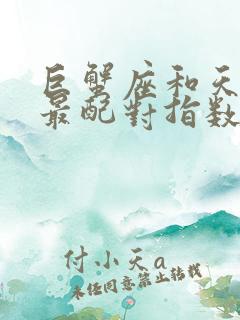 巨蟹座和天
最配對指数
付小天a
未经同意禁止转载